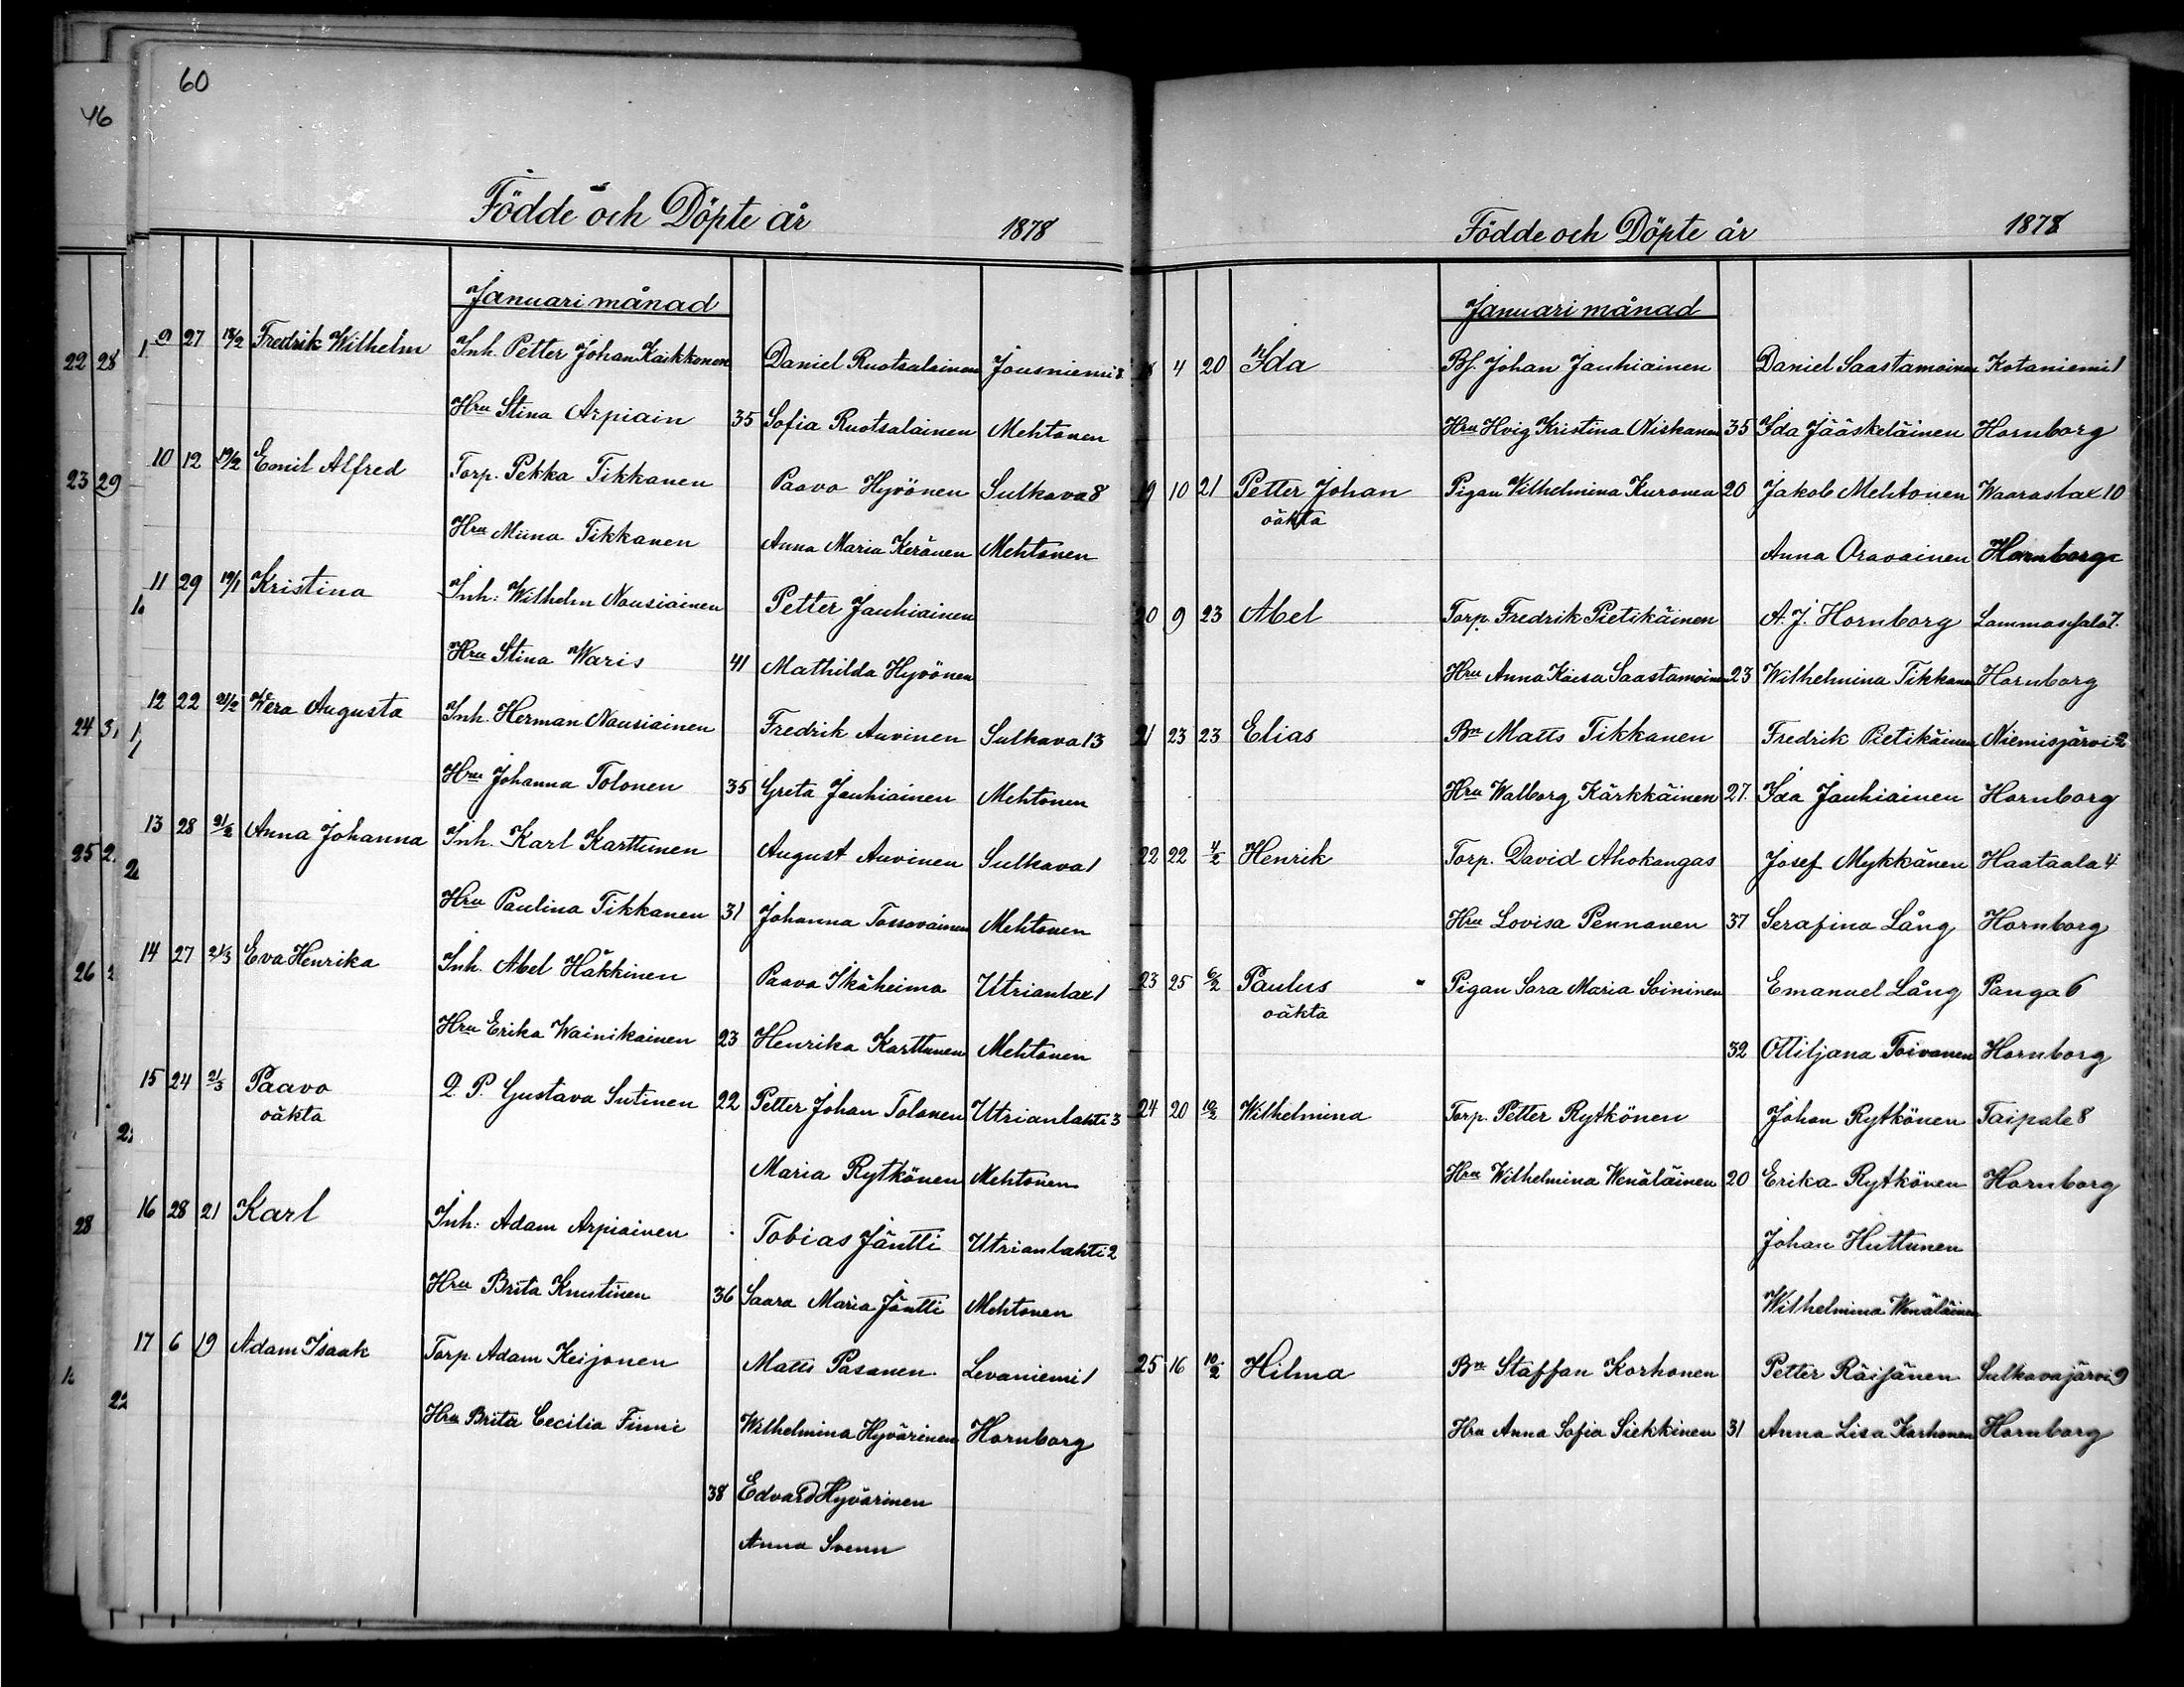 60
46
Födde och Döpte år 1878
Januari månad
9 27 18/2 Fredrik Wilhelm Inh. Petter Johan Kaikkonen Daniel Ruotsalainen Jousniemi 8
Hru Stina Arpiain 35 Sofia Ruotsalainen Mehtonen
10 12 19/2 Emil Alfred Torp. Pekka Tikkanen Paavo Hyvönen Sulkava 8
Hru Miina Tikkanen Anna Maria Keränen Mehtonen
11 29 19/1 Kristina Inh: Wilhelm Nousiainen Petter Jauhiainen
Hru Stina Waris 41 Mathilda Hyvönen
12 22 21/2 Wera Augusta Inh. Herman Nousiainen Fredrik Auvinen Sulkava 13
Hru Johanna Tolonen 35 Greta Jauhiainen Mehtonen
13 28 21/2 Anna Johanna Inh. Karl Karttunen August Auvinen Sulkava 1
Hru Paulina Tikkanen 31 Johanna Tossavainen Mehtonen
14 27 21/3 Eva Henrika Inh. Abel Häkkinen Paavo Ikäheimo Utrianlax 1
Hru Erika Wainikainen 23 Henrika Karttunen Mehtonen
15 24 21/3 Paavo Q. P. Gustava Sutinen 22 Petter Johan Tolonen Utrianlahti 3
oäkta
Maria Rytkönen Mehtonen
16 28 21 Karl Inh: Adam Arpiainen Tobias Jäntti Utrianlahti 2
Hru Brita Knuutinen 36 Saara Maria Jäntti Mehtonen
17 6 19 Adam Isaak Torp. Adam Keijonen Matts Pasanen Levaniemi 1
Hru Brita Cecilia Finni Wilhelmina Hyvärinen Hornborg
38 Edvard Hyvärinen
Anna Svenn
22 28
23 29
24 3
25 2
26 2
28
Födde och Döpte år 1878
Januari månad
18 4 20 Ida Bf. Johan Jauhiainen Daniel Saastamoinen Kotaniemi 1
Hru Hvig Kristina Niskanen 35 Ida Jääskeläinen Hornborg
19 10 21 Petter Johan Pigan Wilhelmina Kuronen 20 Jakob Mehtonen Waaraslax 10
oäkta
Anna Oravainen Hornborg
20 9 23 Abel Torp. Fredrik Pietikäinen A. J. Hornborg Lammassalo 7.
Hru Anna Kaisa Saastamoinen 23 Wilhelmina Tikkanen Hornborg
21 23 23 Elias Bn Matts Tikkanen Fredrik Pietikäinen Niemisjärvi 2
Hru Walborg Kärkkäinen 27. Ida Jauhiainen Hornborg
22 22 4/2 Henrik Torp. David Ahokangas Josef Mykkänen Haataala 4
Hru Lovisa Pennanen 37 Serafina Lång Hornborg
23 25 6/2 Paulus Pigan Sara Maria Soininen Emanuel Lång Panga 6
oäkta
32 Ottiljana Toivanen Hornborg
24 20 10/2 Wilhelmina Torp. Petter Rytkönen Johan Rytkönen Taipale 8
Hru Wilhelmina Wenäläinen 20 Erika Rytkönen Hornborg
Johan Huttunen
Wilhelmina Wenäläinen
25 16 10/2 Hilma Bn Staffan Korhonen Petter Räisänen Sulkavajärvi 9
Hru Anna Sofia Siekkinen 31 Anna Lisa Korhonen Hornborg